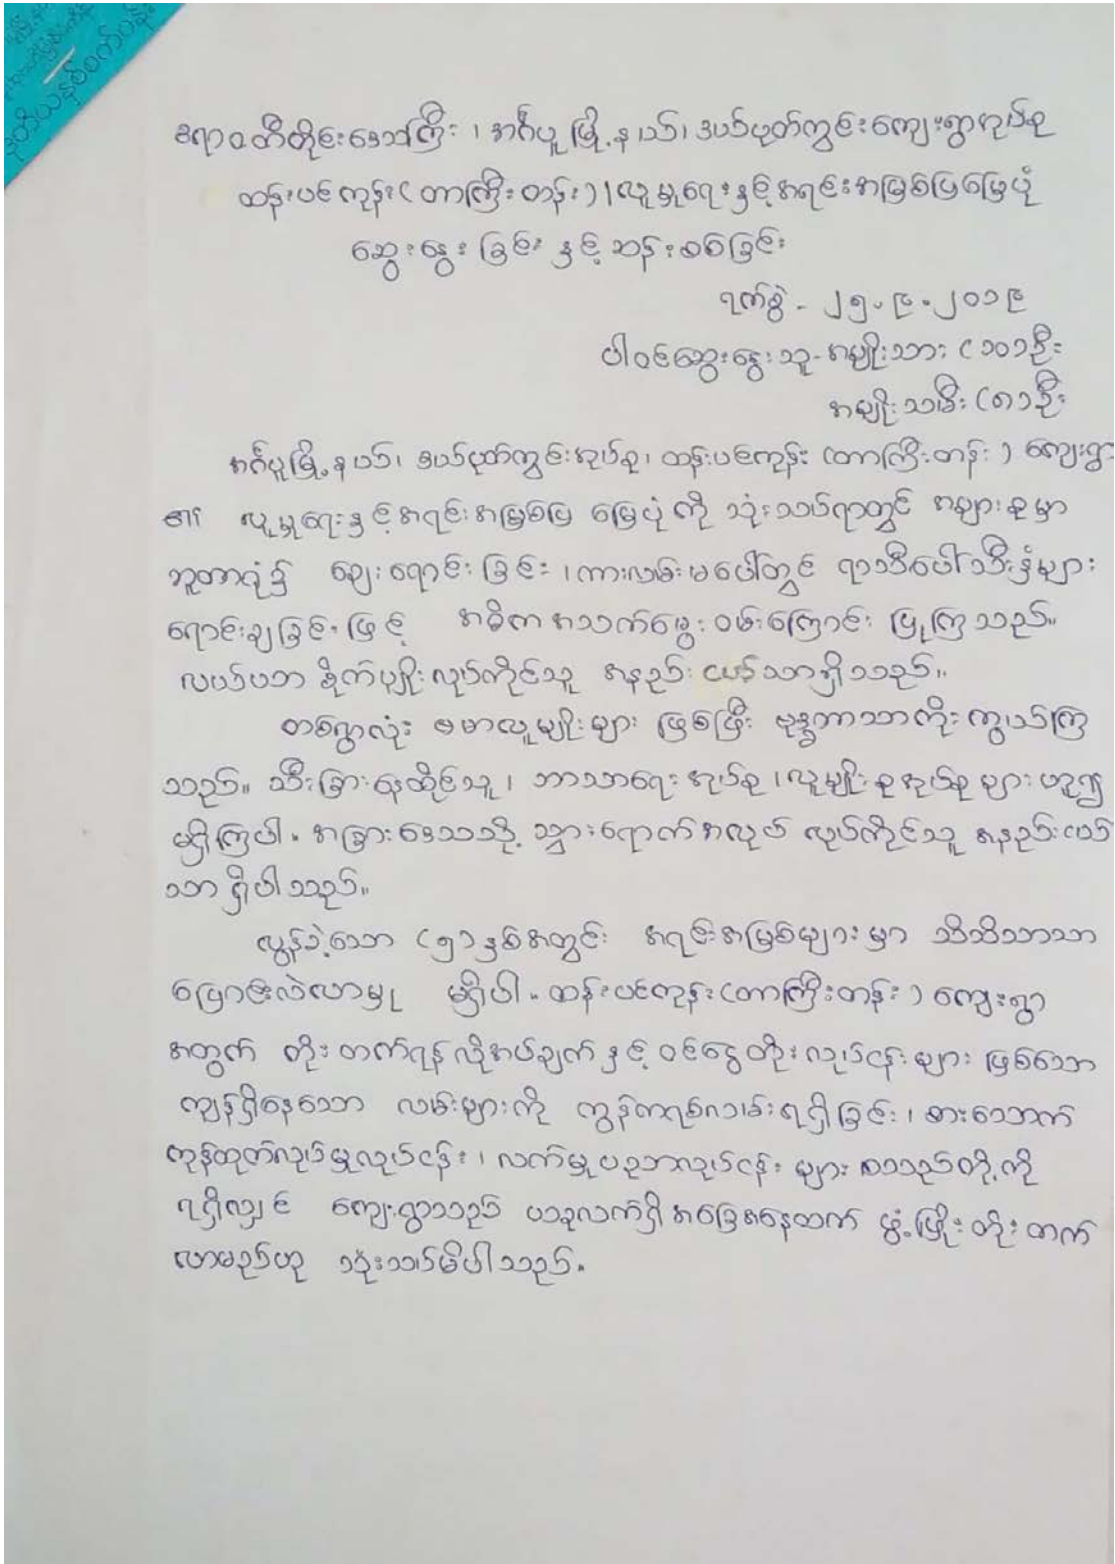 ဒုတိယနှစ်စက်ဝန်း
ဧရာဝတီတိုင်းဒေသကြီး ၊ အင်္ဂပူမြို့နယ်၊ ဒယ်ပုတ်ကွင်းကျေးရွာအုပ်စု
ထန်းပင်ကုန်း ( တာကြီးတန်း ) ၊ လူမှုရေးနှင့်အရင်းအမြစ်ပြမြေပုံ
ဆွေးနွေးခြင်း နှင့် ဆန်းစစ်ခြင်း
ရက်စွဲ - ၂၅.၉.၂၀၁၉
ပါဝင်ဆွေးနွေးသူ - အမျိုးသား (၁၀)ဦး
အမျိုးသမီး (၈)ဦး
အင်္ဂပူမြို့နယ်၊ ဒယ်ပုတ်ကွင်းအုပ်စု၊ ထန်းပင်ကုန်း (တာကြီးတန်း ) ကျေးရွာ
၏ လူမှုရေးနှင့်အရင်းအမြစ်ပြ မြေပုံကို သုံးသပ်ရာတွင် အများစုမှာ
ဘူတာရုံ၌ ဈေးရောင်းခြင်း ၊ ကားလမ်းမပေါ်တွင် ရာသီပေါ်သီးနှံများ
ရောင်းချခြင်းဖြင့် အဓိကအသက်မွေးဝမ်းကြောင်း ပြုကြသည်။
လယ်ယာစိုက်ပျိုးလုပ်ကိုင်သူ အနည်းငယ်သာရှိသည်။
တစ်ရွာလုံး ဗမာလူမျိုးများ ဖြစ်ပြီး ဗုဒ္ဓဘာသာကိုးကွယ်ကြ
သည်။ သီးခြားနေထိုင်သူ ၊ ဘာသာရေးအုပ်စု ၊ လူမျိုးစုအုပ်စုများဟူ၍
မရှိကြပါ။ အခြားဒေသသို့ သွားရောက်အလုပ် လုပ်ကိုင်သူ အနည်းငယ်
သာ ရှိပါသည်။
လွန်ခဲ့သော (၅)နှစ်အတွင်း အရင်းအမြစ်များမှာ သိသိသာသာ
ပြောင်းလဲလာမှု မရှိပါ။ ထန်းပင်ကုန်း (တာကြီးတန်း ) ကျေးရွာ
အတွက် တိုးတက်ရန် လိုအပ်ချက် နှင့် ဝင်ငွေတိုးလုပ်ငန်းများ ဖြစ်သော
ကျန်ရှိနေသော လမ်းများကို ကွန်ကရစ်လမ်းရရှိခြင်း ၊ စားသောက်
ကုန်ထုတ်လုပ်မှုလုပ်ငန်း ၊ လက်မှုပညာလုပ်ငန်း များ စသည်တို့ကို
ရရှိလျှင် ကျေးရွာသည် ယခုလက်ရှိအခြေအနေထက် ဖွံ့ဖြိုးတိုးတက်
လာမည်ဟု သုံးသပ်မိပါသည်။